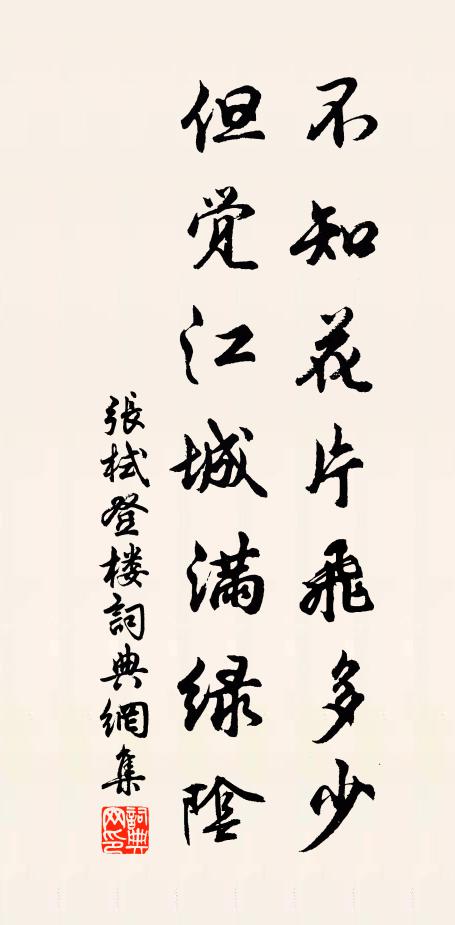 不知花片飛多少
但覚江城満緑陰
張栻登楼詞典網集
詞典网印